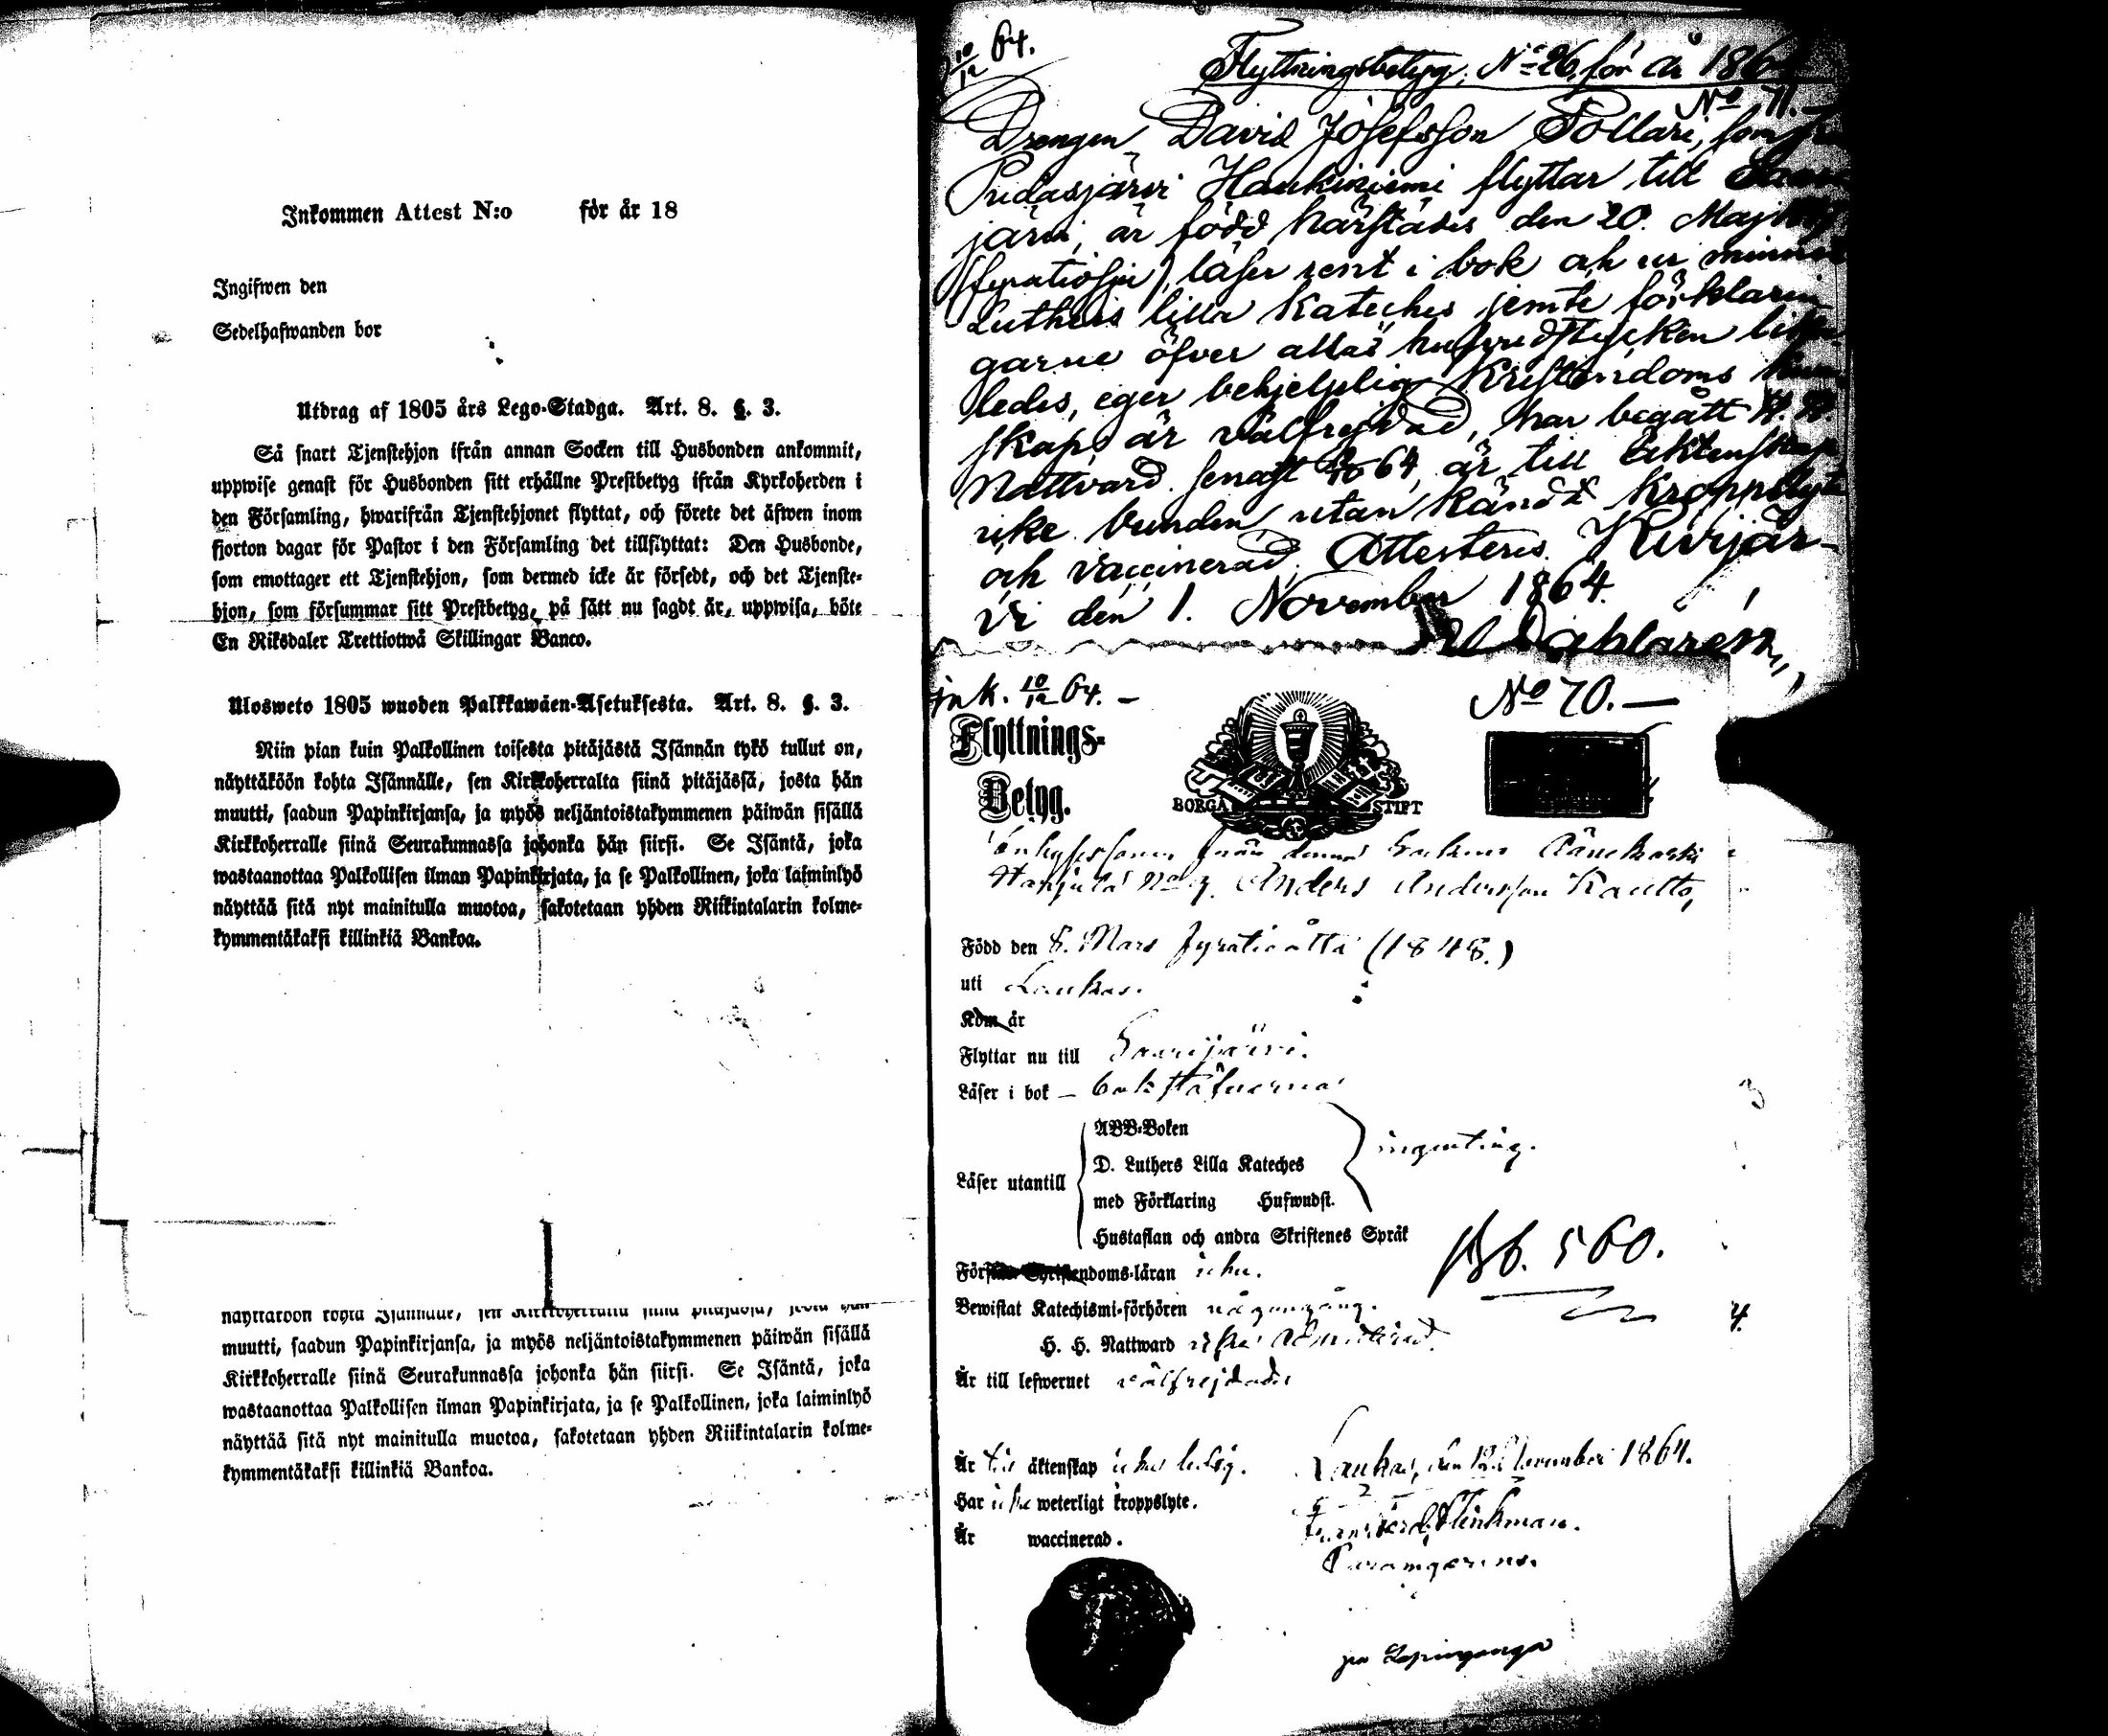 Inkommen Attest N:o för år 18
Ingifwen den
Sedelhafwanden bor
Utdrag af 1805 års Lego-Stadga. Art. 8. §. 3.
Så snart Tjenstehjon ifrån annan Socken till Husbonden ankommit,
uppwise genast för Husbonden sitt erhållne Prestbetyg ifrån Kyrkoherden i
den Församling, hwarifrån Tjenstehjonet flyttat, och förete det äfwen inom
fjorton dagar för Pastor i den Församling det tillflyttat: Den Husbonde,
som emottager ett Tjenstehjon, som dermed icke är försedt, och det Tjenste-
hjon, som försummar sitt Prestbetyg, på sätt nu sagdt är, uppwisa, böte
En Riksdaler Trettiotwå Skillingar Banco.
Ulosweto 1805 wuoden Palkkawäen-Asetuksesta. Art. 8. §. 3.
Niin pian kuin Palkollinen toisesta pitäjästä Isännän tykö tullut on,
näyttäköön kohta Isännälle, sen Kirkkoherralta siinä pitäjässä, josta hän
muutti, saadun Papinkirjansa, ja myös neljäntoistakymmenen päiwän sisällä
Kirkkoherralle siinä Seurakunnassa johonka hän siirsi. Se Isäntä, joka
wastaanottaa Palkollisen ilman Papinkirjata, ja se Palkollinen, joka laiminlyö
näyttää sitä nyt mainitulla muotoa, sakotetaan yhden Riikintalarin kolme-
kymmentäkaksi killinkiä Bankoa.
näyttäköön kohta Isännälle, sen Kirkkoherralta siinä pitäjässä, josta hän
muutti, saadun Papinkirjansa, ja myös neljäntoistakymmenen päiwän sisällä
Kirkkoherralle siinä Seurakunnassa johonka hän siirsi. Se Isäntä, joka
wastaanottaa Palkollisen ilman Papinkirjata, ja se Palkollinen, joka laiminlyö
näyttää sitä nyt mainitulla muotoa, sakotetaan yhden Riikintalarin kolme-
kymmentäkaksi killinkiä Bankoa.
10/12 64.
Flyttningsbetyg, No 26, för år 186
No 71.
Drengen David Josefsson Pollari, som
Pudasjärvi Haukiniemi flyttar till
järvi, är född härstädes den 20. Maj
läser rent i bok och ur minnet
Luthers lilla Kateches jemte förklarin
garne öfver allas hufvudstycken
ledes, eger behjelplig Kristendoms
skap, är välfrejdad, har begått H. H.
Nattvard senast 64, är till äktenskap
icke bunden, utan kändt kroppslyte
och vaccinerad, Attesteras. Kivijär-
vi den 1. November 1864.
ink. 10/12 64. —
No 70. —
Flyttnings-
Betyg.
BORGÅ STIFT
från denna Socken Äänekoski
No Anders Andersson Kautto,
Född den 8. Mars fyratioåtta (1848.)
uti Laukas.
Kom år
Flyttar nu till Saarijärvi.
Läser i bok — bokstäfverna
Läser utantill
ABB-Boken
D. Luthers Lilla Kateches
med Förklaring Hufwudst.
Hustaflan och andra Skriftenes Språk
ingenting.
560.
Förstår Christendoms-läran icke.
Bewistat Katechismi-förhören någongång.
H. H. Nattward icke admitterad.
Är till lefwernet välfrejdad
4.
Är till äktenskap icke ledig.
Laukas, den 12 November 1864.
Har icke weterligt kroppslyte.
Är waccinerad.